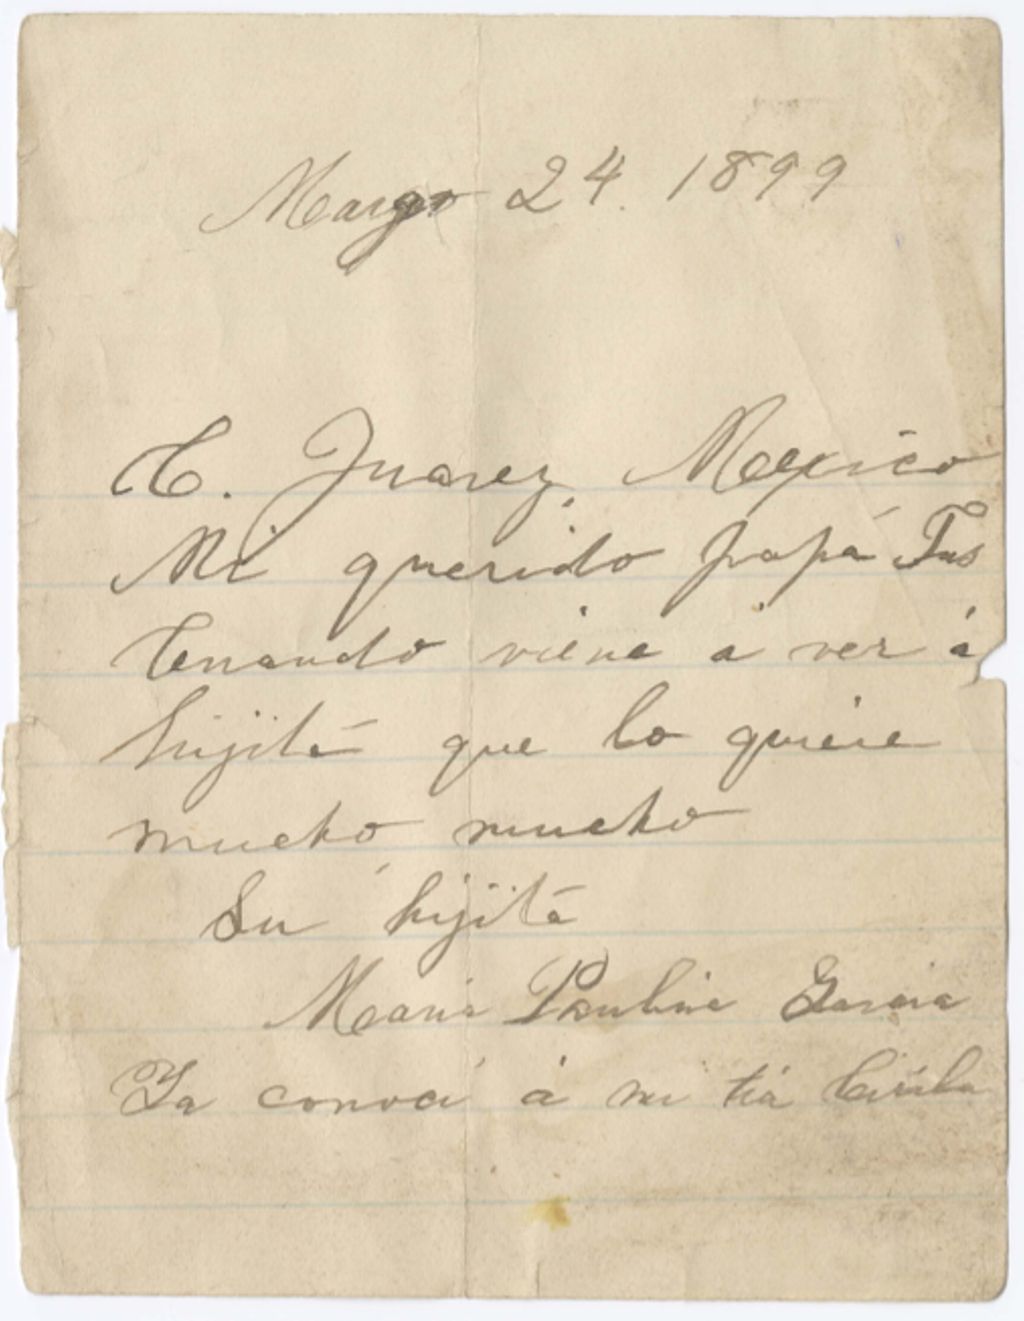 Margo 24. 1899
C. Juarez, Mexico
Mi querido papá
Cuando viene a ver á
hijita que lo quiere
mucho mucho
Su hijita
Maria Paulina Garcia
Ya conocí á mi tiá